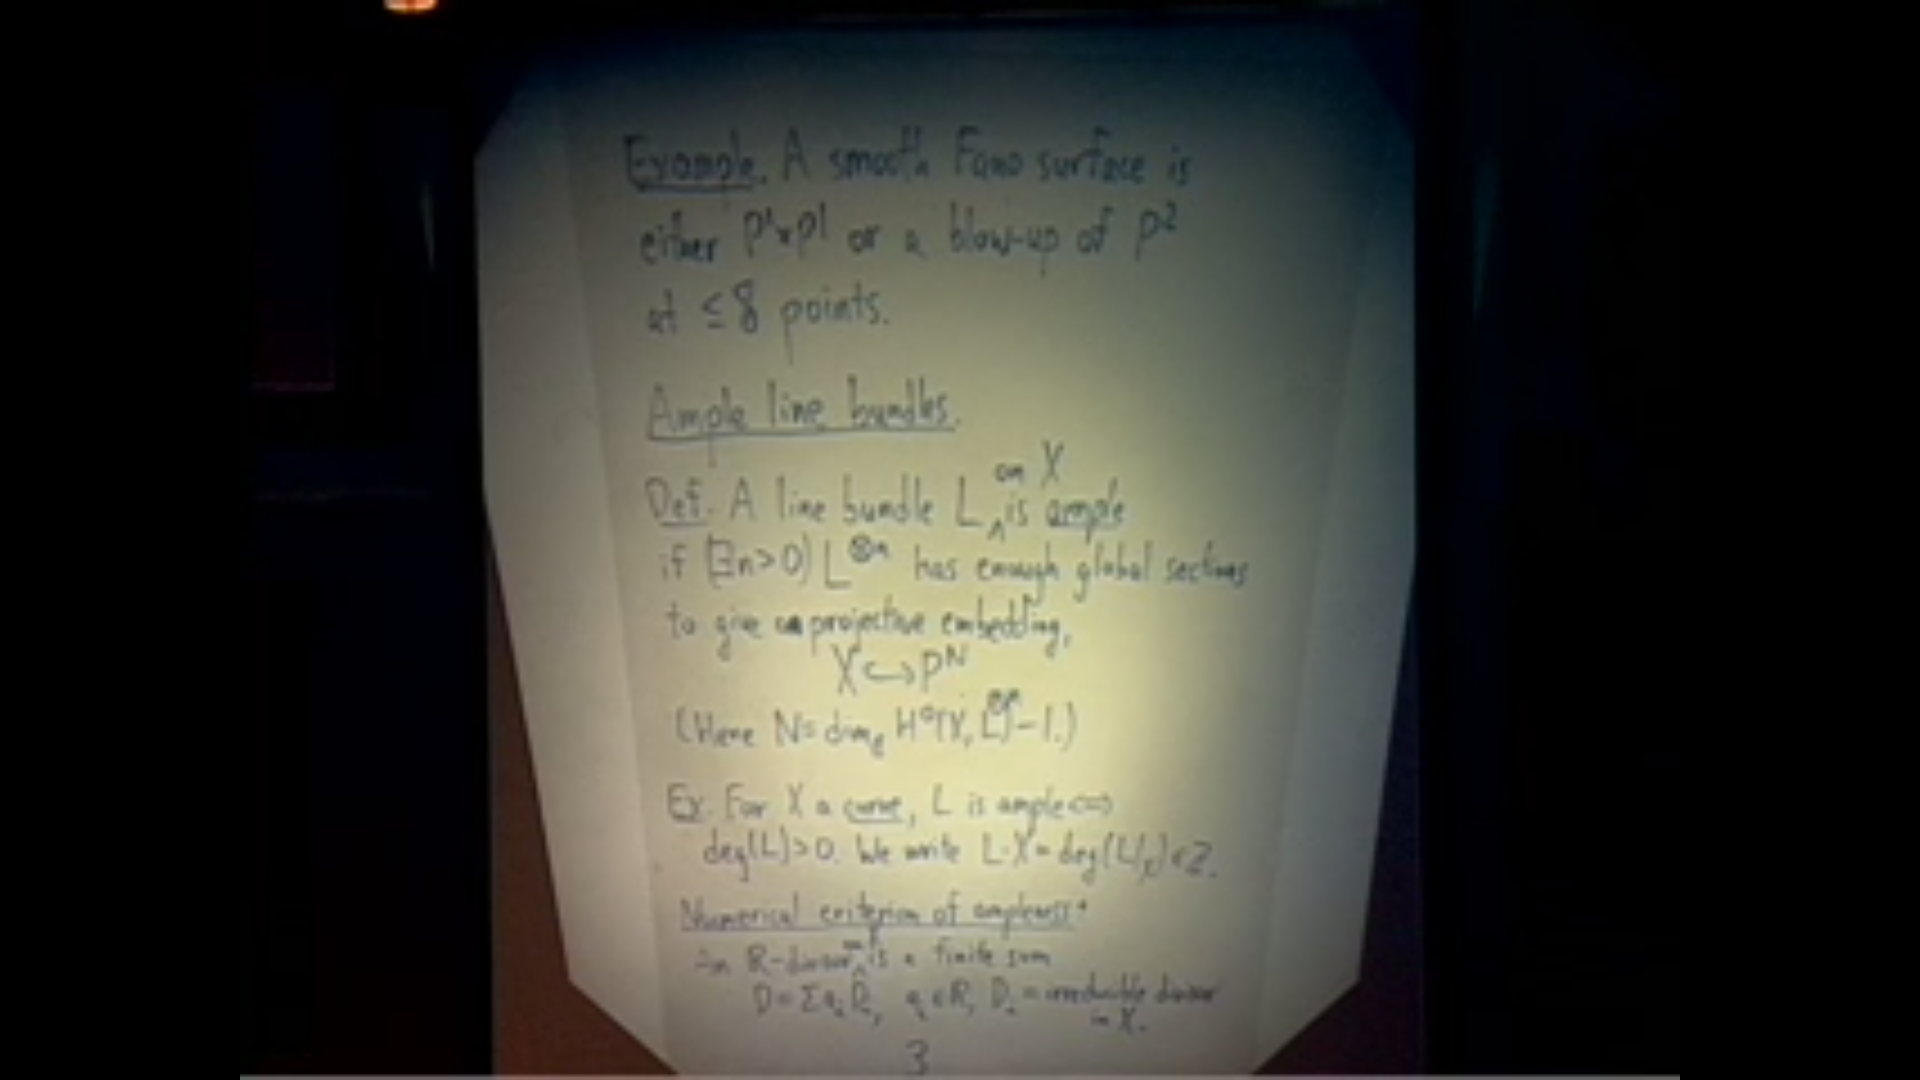 Example. A smooth Fano surface is
either P¹×P¹ or a blow-up of P²
at ≤ 8 points.
Ample line bundles.
on X
Def. A line bundle L ^ is ample
if (∃n>0) L^⊗n has enough global sections
to give a projective embedding,
X ↪ P^N
(Here N = dim_C H⁰(X, L^⊗n) - 1.)
Ex. For X a curve, L is ample ⇔
deg(L) > 0. We write L·X = deg(L|_X) ∈ Z.
Numerical criterion of ampleness:
An R-divisor on X is a finite sum
D = Σ a_i D_i, a_i ∈ R, D_i = irreducible divisor
in X.
3